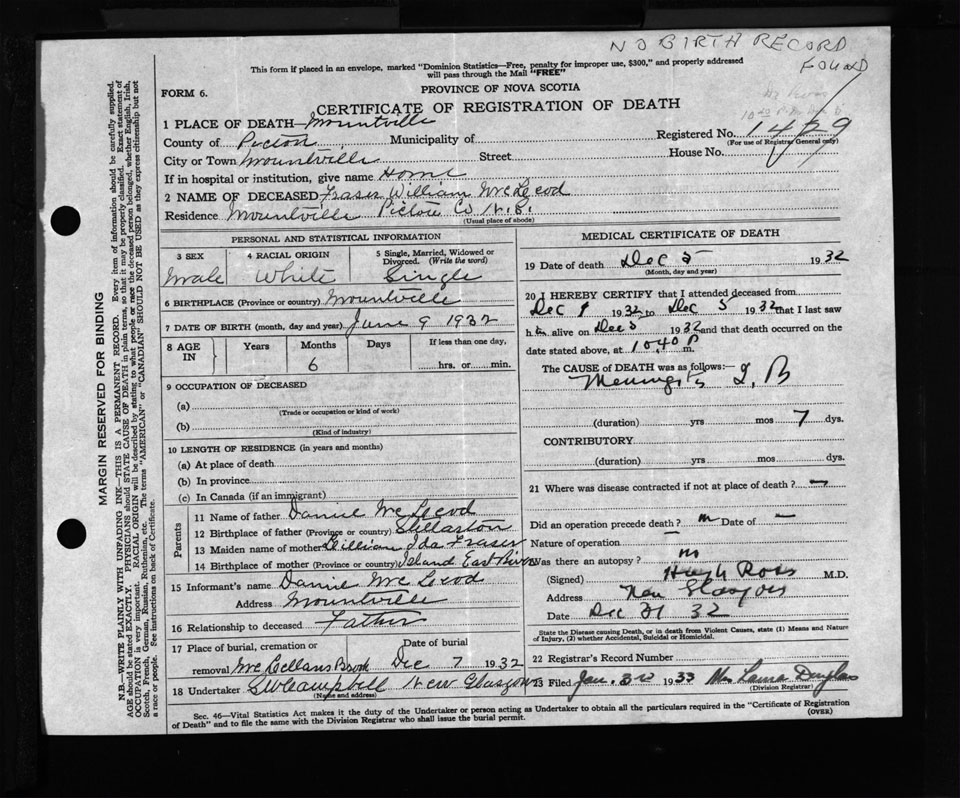 NO BIRTH RECORD
FOUND
This form if placed in an envelope, marked "Dominion Statistics—Free, penalty for improper use, $300," and properly addressed
will pass through the Mail "FREE"
PROVINCE OF NOVA SCOTIA
FORM 6.
CERTIFICATE OF REGISTRATION OF DEATH
1 PLACE OF DEATH—Mountville
County of Pictou Municipality of
Registered No.
(For use of Registrar General only)
City or Town Mountville Street House No.
If in hospital or institution, give name Home
2 NAME OF DECEASED Fraser William McLeod
Residence Mountville Pictou Co N.S.
(Usual place of abode)
PERSONAL AND STATISTICAL INFORMATION
3 SEX 4 RACIAL ORIGIN 5 Single, Married, Widowed or Divorced. (Write the word)
Male White Single
6 BIRTHPLACE (Province or country) Mountville
7 DATE OF BIRTH (month, day and year) June 9 1932
8 AGE IN Years Months Days If less than one day,
6 hrs. or min.
9 OCCUPATION OF DECEASED
(a)
(Trade or occupation or kind of work)
(b)
(Kind of industry)
10 LENGTH OF RESIDENCE (in years and months)
(a) At place of death
(b) In province
(c) In Canada (if an immigrant)
Parents
11 Name of father Daniel McLeod
12 Birthplace of father (Province or country) Stellarton
13 Maiden name of mother Lillian Ida Fraser
14 Birthplace of mother (Province or country) Island East River
15 Informant's name Daniel McLeod
Address Mountville
16 Relationship to deceased Father
17 Place of burial, cremation or Date of burial
removal McLellans Brook Dec 7 1932
18 Undertaker SW Campbell New Glasgow
(Name and address)
MEDICAL CERTIFICATE OF DEATH
19 Date of death Dec 5 1932
(Month, day and year)
20 I HEREBY CERTIFY that I attended deceased from
Dec 1 1932 to Dec 5 1932 that I last saw
h im alive on Dec 5 1932 and that death occurred on the
date stated above, at 10.40 P m.
The CAUSE of DEATH was as follows:—
Meningitis T.B
(duration) yrs mos 7 dys.
CONTRIBUTORY
(duration) yrs mos dys.
21 Where was disease contracted if not at place of death? —
Did an operation precede death? no Date of —
Nature of operation —
Was there an autopsy? no
(Signed) Hugh Ross M.D.
Address New Glasgow
Date Dec 31 32
State the Disease causing Death, or in death from Violent Causes, state (1) Means and Nature
of Injury, (2) whether Accidental, Suicidal or Homicidal.
22 Registrar's Record Number
23 Filed Jan. 1933 Mrs Laura Douglas
(Division Registrar)
Sec. 46—Vital Statistics Act makes it the duty of the Undertaker or person acting as Undertaker to obtain all the particulars required in the "Certificate of Registration
of Death" and to file the same with the Division Registrar who shall issue the burial permit.
(OVER)
MARGIN RESERVED FOR BINDING
N.B.—WRITE PLAINLY WITH UNFADING INK—THIS IS A PERMANENT RECORD. Every item of information should be carefully supplied.
AGE should be stated EXACTLY. PHYSICIANS should STATE CAUSE OF DEATH in plain terms, so that it may be properly classified. Exact statement of
OCCUPATION is very important. RACIAL ORIGIN will be described by stating to what people or race the deceased person belonged, whether English, Irish,
Scotch, French, German, Russian, Ruthenian, etc. The terms "AMERICAN" or "CANADIAN" SHOULD NOT BE USED as they express citizenship but not
a race or people. See instructions on back of Certificate.